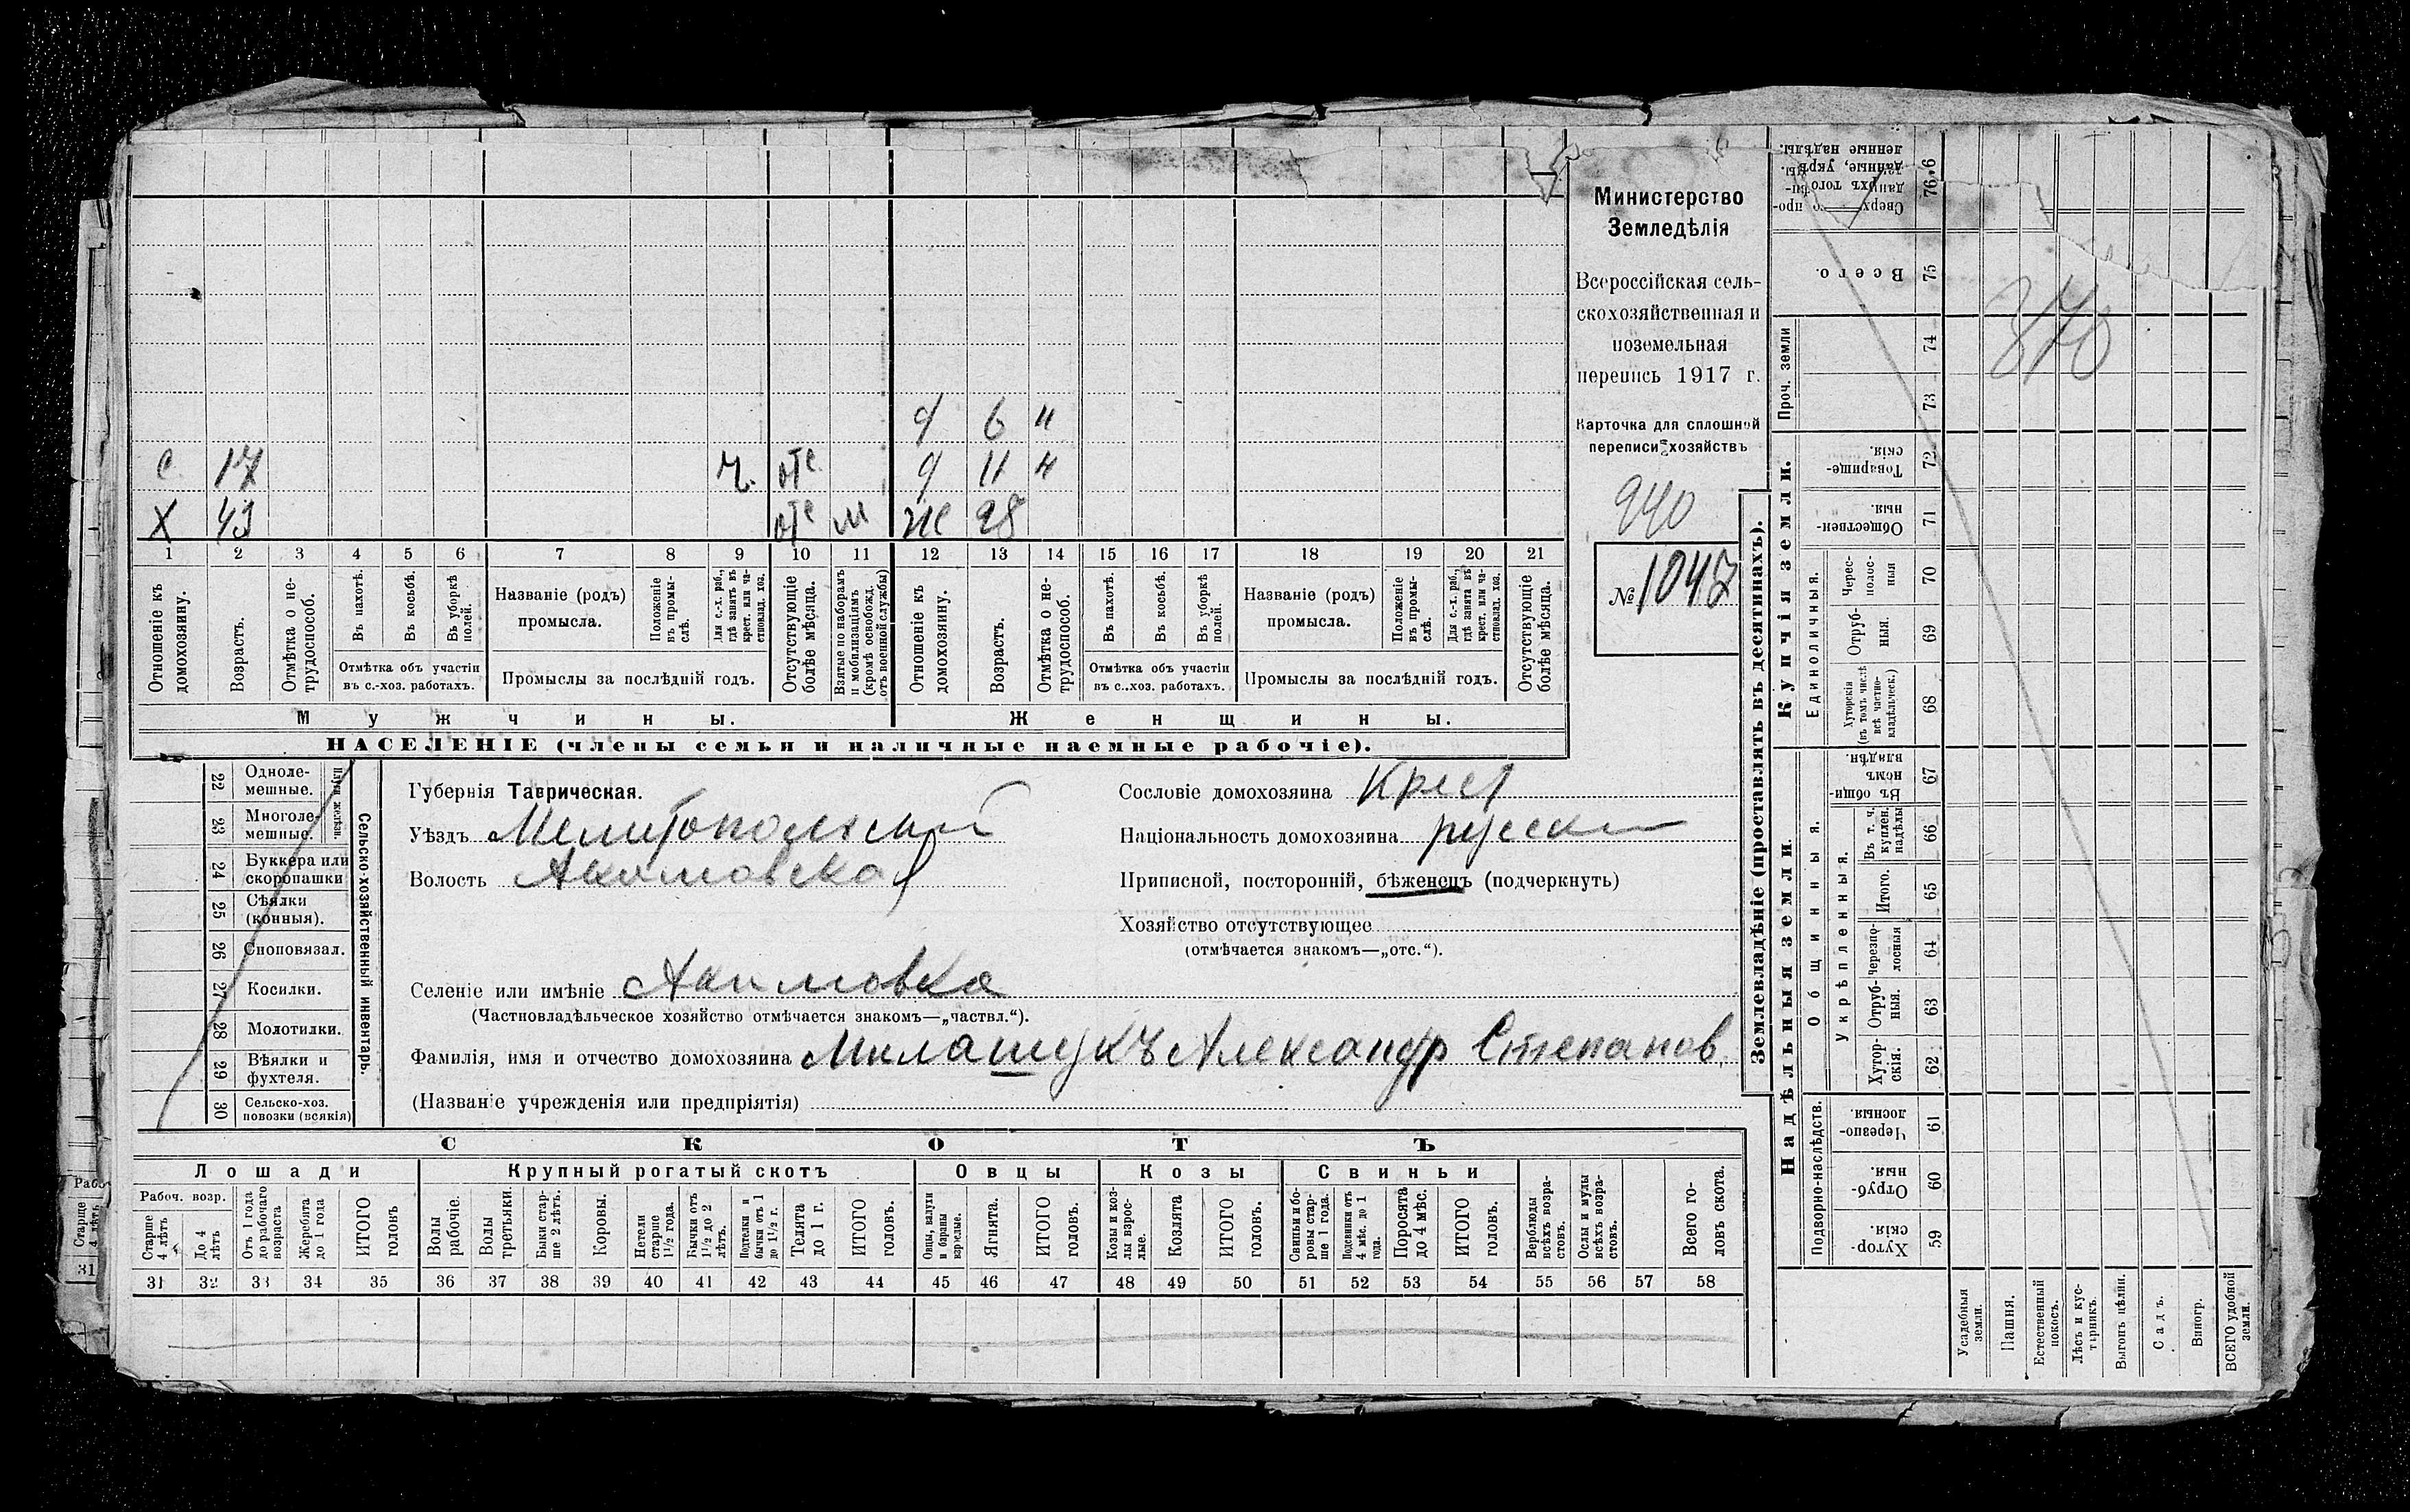 Министерство
Земледѣлія
Всероссійская сель-
скохозяйственная и
поземельная
перепись 1917 г.
Карточка для сплошной
переписи хозяйствъ
940
№ 1047
870
д 6 н
с 17 ч. отс д 11 н
х 43 отс м же 28
1 2 3 4 5 6 7 8 9 10 11 12 13 14 15 16 17 18 19 20 21
Отношеніе къ домохозяину.
Возрастъ.
Отмѣтка о не-трудоспособ.
Въ пахотѣ.
Въ косьбѣ.
Въ уборкѣ полей.
Отмѣтка объ участіи
въ с.-хоз. работахъ.
Названіе (родъ)
промысла.
Положеніе въ промы-слѣ.
Для с.-х. раб., гдѣ занятъ въ крест. или ча-стновлад. хоз.
Промыслы за послѣдній годъ.
Отсутствующіе болѣе мѣсяца.
Взятые по наборамъ и мобилизаціямъ (кромѣ освобожд. отъ военной службы)
Отношеніе къ домохозяину.
Возрастъ.
Отмѣтка о не-трудоспособ.
Въ пахотѣ.
Въ косьбѣ.
Въ уборкѣ полей.
Отмѣтка объ участіи
въ с.-хоз. работахъ.
Названіе (родъ)
промысла.
Положеніе въ промы-слѣ.
Для с.-х. раб., гдѣ занята въ крест. или ча-стновлад. хоз.
Промыслы за послѣдній годъ.
Отсутствующіе болѣе мѣсяца.
Мужчины. Женщины.
НАСЕЛЕНІЕ (члены семьи и наличные наемные рабочіе).
Сельско-хозяйственный инвентарь.
22 Одноле-мешные.
23 Многоле-мешные.
24 Буккера или скоропашки
25 Сѣялки (конныя).
26 Сноповязал.
27 Косилки.
28 Молотилки.
29 Вѣялки и фухтеля.
30 Сельско-хоз. повозки (всякія)
Губернія Таврическая.
Уѣздъ Мелитопольский
Волость Акимовская
Селеніе или имѣніе Акимовка
(Частновладѣльческое хозяйство отмѣчается знакомъ—„частвл.“).
Фамилія, имя и отчество домохозяина Милашукъ Александр Степанов
(Названіе учрежденія или предпріятія)
Сословіе домохозяина Крест
Національность домохозяина русский
Приписной, посторонній, бѣженецъ (подчеркнуть)
Хозяйство отсутствующее
(отмѣчается знакомъ—„отс.“).
СКОТЪ
Лошади Крупный рогатый скотъ Овцы Козы Свиньи
Рабоч. возр.
Старше 4 лѣтъ
До 4 лѣтъ
Отъ 1 года до рабочаго возраста
Жеребята до 1 года
ИТОГО головъ
Волы рабочіе.
Волы третьяки.
Быки стар-ше 2 лѣтъ.
Коровы.
Нетели старше 1½ года.
Бычки отъ 1½ до 2 лѣтъ.
Подтелки и бычки отъ 1 до 1½ г.
Телята до 1 г.
ИТОГО головъ.
Овцы, валухи и бараны взрослые.
Ягнята.
ИТОГО головъ.
Козы и коз-лы взрос-лые.
Козлята
ИТОГО головъ.
Свиньи и бо-ровы стар-ше 1 года.
Подсвинки отъ 4 мѣс. до 1 года.
Поросята до 4 мѣс.
ИТОГО головъ.
Верблюды всѣхъ возра-стовъ.
Ослы и мулы всѣхъ возра-стовъ.
Всего го-ловъ скота.
31 32 33 34 35 36 37 38 39 40 41 42 43 44 45 46 47 48 49 50 51 52 53 54 55 56 57 58
Землевладѣніе (проставлять въ десятинахъ).
Купчія земли.
Надѣльныя земли.
Проч. земли
Единоличныя.
Общинныя.
Укрѣпленныя.
Подворно-наслѣдств.
Всего. 75
74
73
Товарище-скія. 72
Обществен-ныя. 71
Черес-полос-ныя 70
Отруб-ныя. 69
Хуторскія (въ томъ числѣ всѣ частно-владѣльческ.) 68
Въ общин-номъ владѣн. 67
Въ т. ч. куплен. надѣлы 66
Итого. 65
Черезпо-лосныя 64
Отруб-ныя. 63
Хутор-скія. 62
Черезпо-лосныя 61
Отруб-ныя. 60
Хутор-скія. 59
Усадебныя земли.
Пашня.
Естественный покосъ.
Лѣсъ и кус-тарникъ.
Выгонъ цѣлин.
Садъ.
Виногр.
ВСЕГО удобной земли.